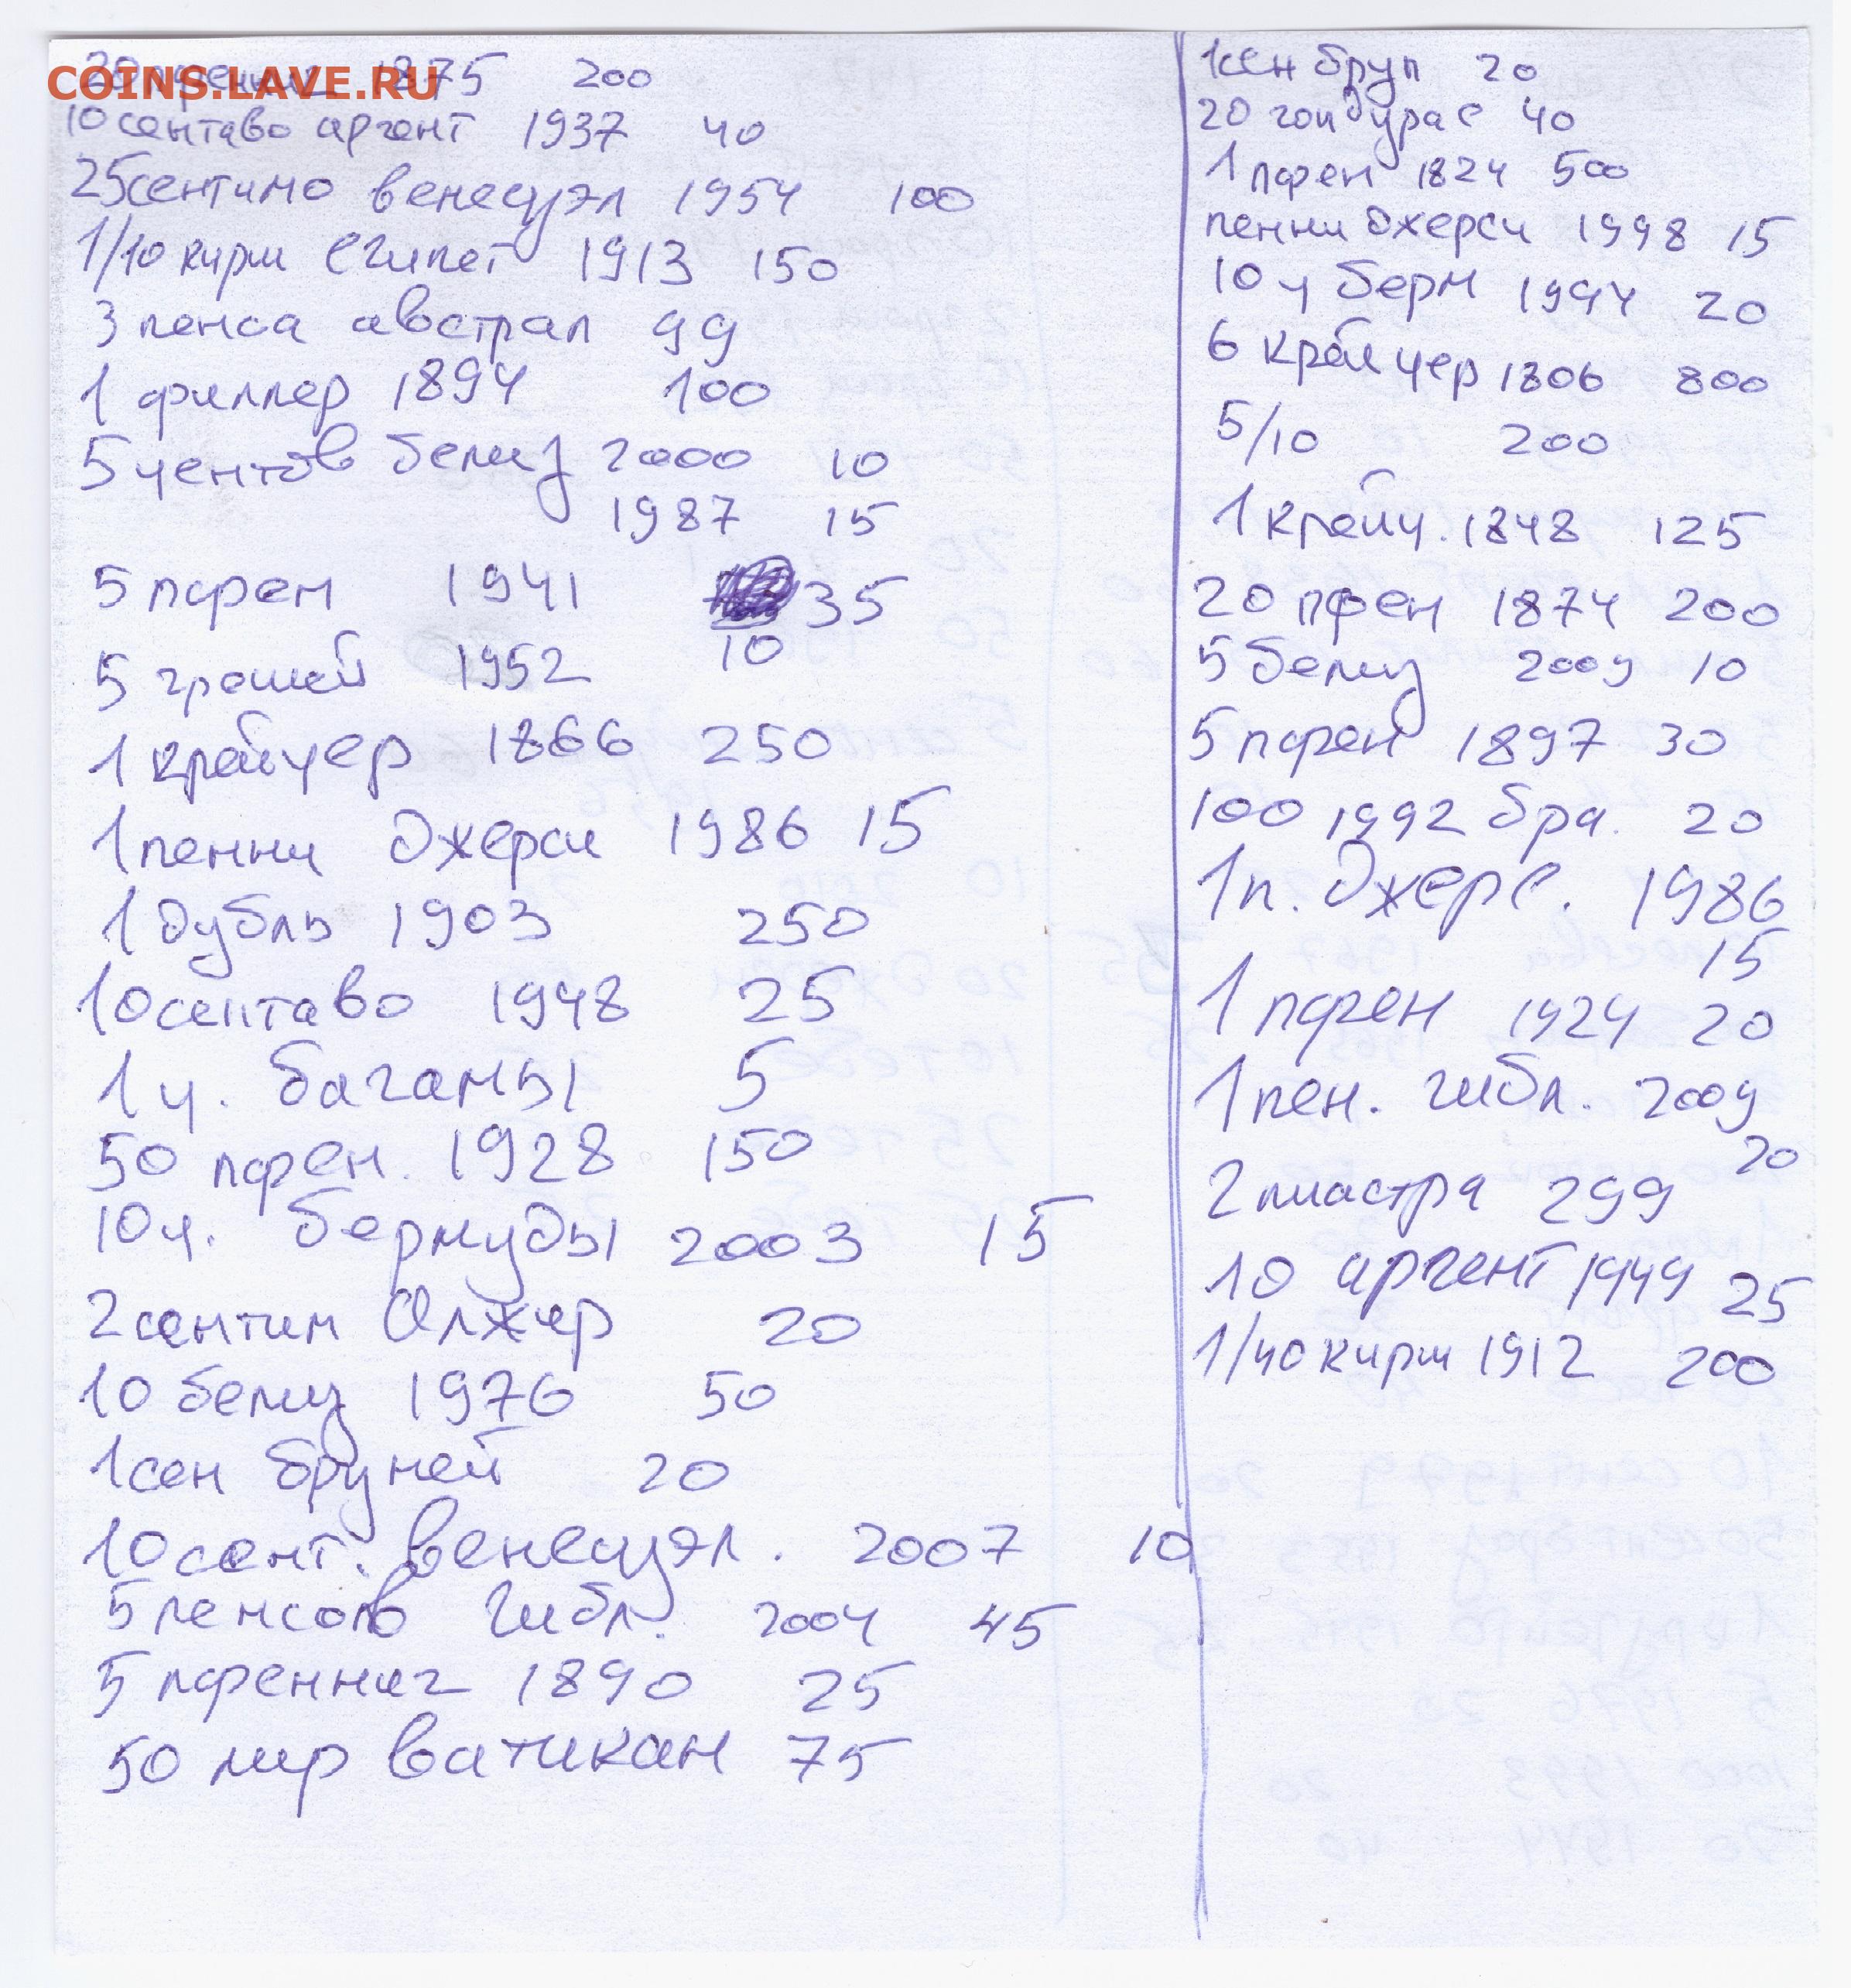 COINS.LAVE.RU
20 пфенниг 1875 200
10 сентаво аргент 1937 40
25 сентимо венесуэл 1954 100
1/10 кирш египет 1913 150
3 пенса австрал 99
1 филлер 1894 100
5 центов белиз 2000 10
1987 15
5 пфен 1941 35
5 грошей 1952 10
1 крейцер 1866 250
1 пенни джерси 1986 15
1 дубль 1903 250
10 сентаво 1948 25
1 ц. багамы 5
50 пфен. 1928 150
10 ц. бермуды 2003 15
2 сентим Алжир 20
10 белиз 1976 50
1 сен бруней 20
10 сент. венесуэл. 2007 10
5 пенсов гибл. 2004 45
5 пфенниг 1890 25
50 лир ватикан 75
1 сен брун 20
20 гондурас 40
1 пфен 1824 500
пенни джерси 1998 15
10 ц берм 1994 20
6 крейцер 1806 800
5/10 200
1 крейц. 1848 125
20 пфен 1874 200
5 белиз 2009 10
5 пфен 1897 30
100 1992 бра. 20
1 п. джерс. 1986
15
1 пфен 1924 20
1 пен. гибл. 2009
20
2 пиастра 299
10 аргент 1949 25
1/40 кирш 1912 200